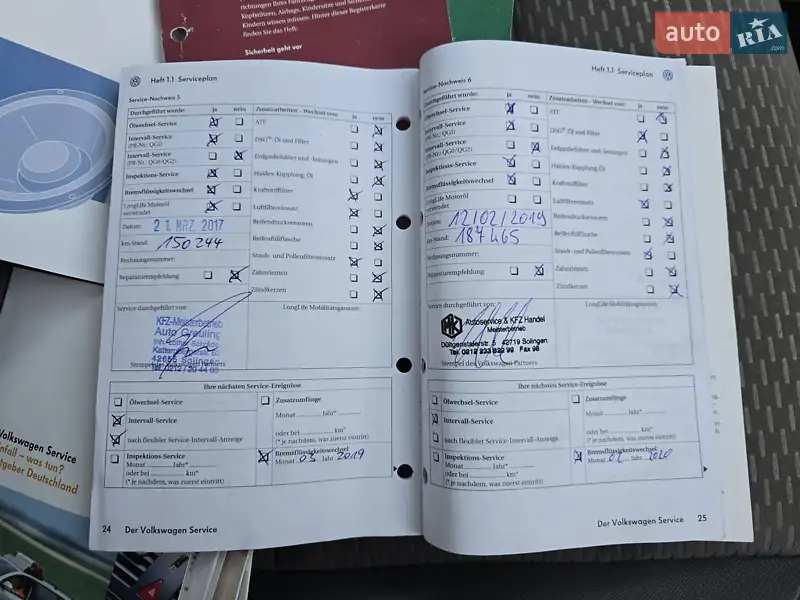 richtungen Ihres
Kopfstützen, Airbags, Kindersitze und
Kindern wissen müssen. Hinter dieser Registerkarte
finden Sie das Heft:
Sicherheit geht vor
auto RIA .com
Heft 1.1 Serviceplan
Service-Nachweis 5
Durchgeführt wurde: ja nein
Ölwechsel-Service
Intervall-Service
(PR-Nr.: QG1)
Intervall-Service
(PR-Nr.: QG0/QG2)
Inspektions-Service
Bremsflüssigkeitswechsel
LongLife Motoröl
verwendet
Datum: 21. MRZ. 2017
km-Stand: 150 244
Rechnungsnummer:
Reparaturempfehlung
Zusatzarbeiten – Wechsel von: ja nein
ATF
DSG®-Öl und Filter
Erdgasbehälter und -leitungen
Haldex-Kupplung, Öl
Kraftstofffilter
Luftfiltereinsatz
Reifendrucksensoren
Reifenfüllflasche
Staub- und Pollenfiltereinsatz
Zahnriemen
Zündkerzen
Service durchgeführt von:
LongLife Mobilitätsgarantie:
KFZ-Meisterbetrieb
Auto Greuling
42655 Solingen
Stempel des Volkswagen Partners
Ihre nächsten Service-Ereignisse
Ölwechsel-Service
Intervall-Service
nach flexibler Service-Intervall-Anzeige
Inspektions-Service
Monat Jahr*
oder bei km*
(* je nachdem, was zuerst eintritt)
Zusatzumfänge
Monat Jahr*
oder bei km*
(* je nachdem, was zuerst eintritt)
Bremsflüssigkeitswechsel
Monat 03 Jahr 2019
24 Der Volkswagen Service
Heft 1.1 Serviceplan
Service-Nachweis 6
Durchgeführt wurde: ja nein
Ölwechsel-Service
Intervall-Service
(PR-Nr.: QG1)
Intervall-Service
(PR-Nr.: QG0/QG2)
Inspektions-Service
Bremsflüssigkeitswechsel
LongLife Motoröl
verwendet
Datum: 12/02/2019
km-Stand: 187465
Rechnungsnummer:
Reparaturempfehlung
Zusatzarbeiten – Wechsel von: ja nein
ATF
DSG®-Öl und Filter
Erdgasbehälter und -leitungen
Haldex-Kupplung, Öl
Kraftstofffilter
Luftfiltereinsatz
Reifendrucksensoren
Reifenfüllflasche
Staub- und Pollenfiltereinsatz
Zahnriemen
Zündkerzen
Service durchgeführt von:
LongLife Mobilitätsgarantie:
Autoservice & KFZ Handel
Meisterbetrieb
42719 Solingen
Stempel des Volkswagen Partners
Ihre nächsten Service-Ereignisse
Ölwechsel-Service
Intervall-Service
nach flexibler Service-Intervall-Anzeige
Inspektions-Service
Monat Jahr*
oder bei km*
(* je nachdem, was zuerst eintritt)
Zusatzumfänge
Monat Jahr*
oder bei km*
(* je nachdem, was zuerst eintritt)
Bremsflüssigkeitswechsel
Monat 02 Jahr 2020
Der Volkswagen Service 25
Volkswagen Service
nfall – was tun?
tgeber Deutschland